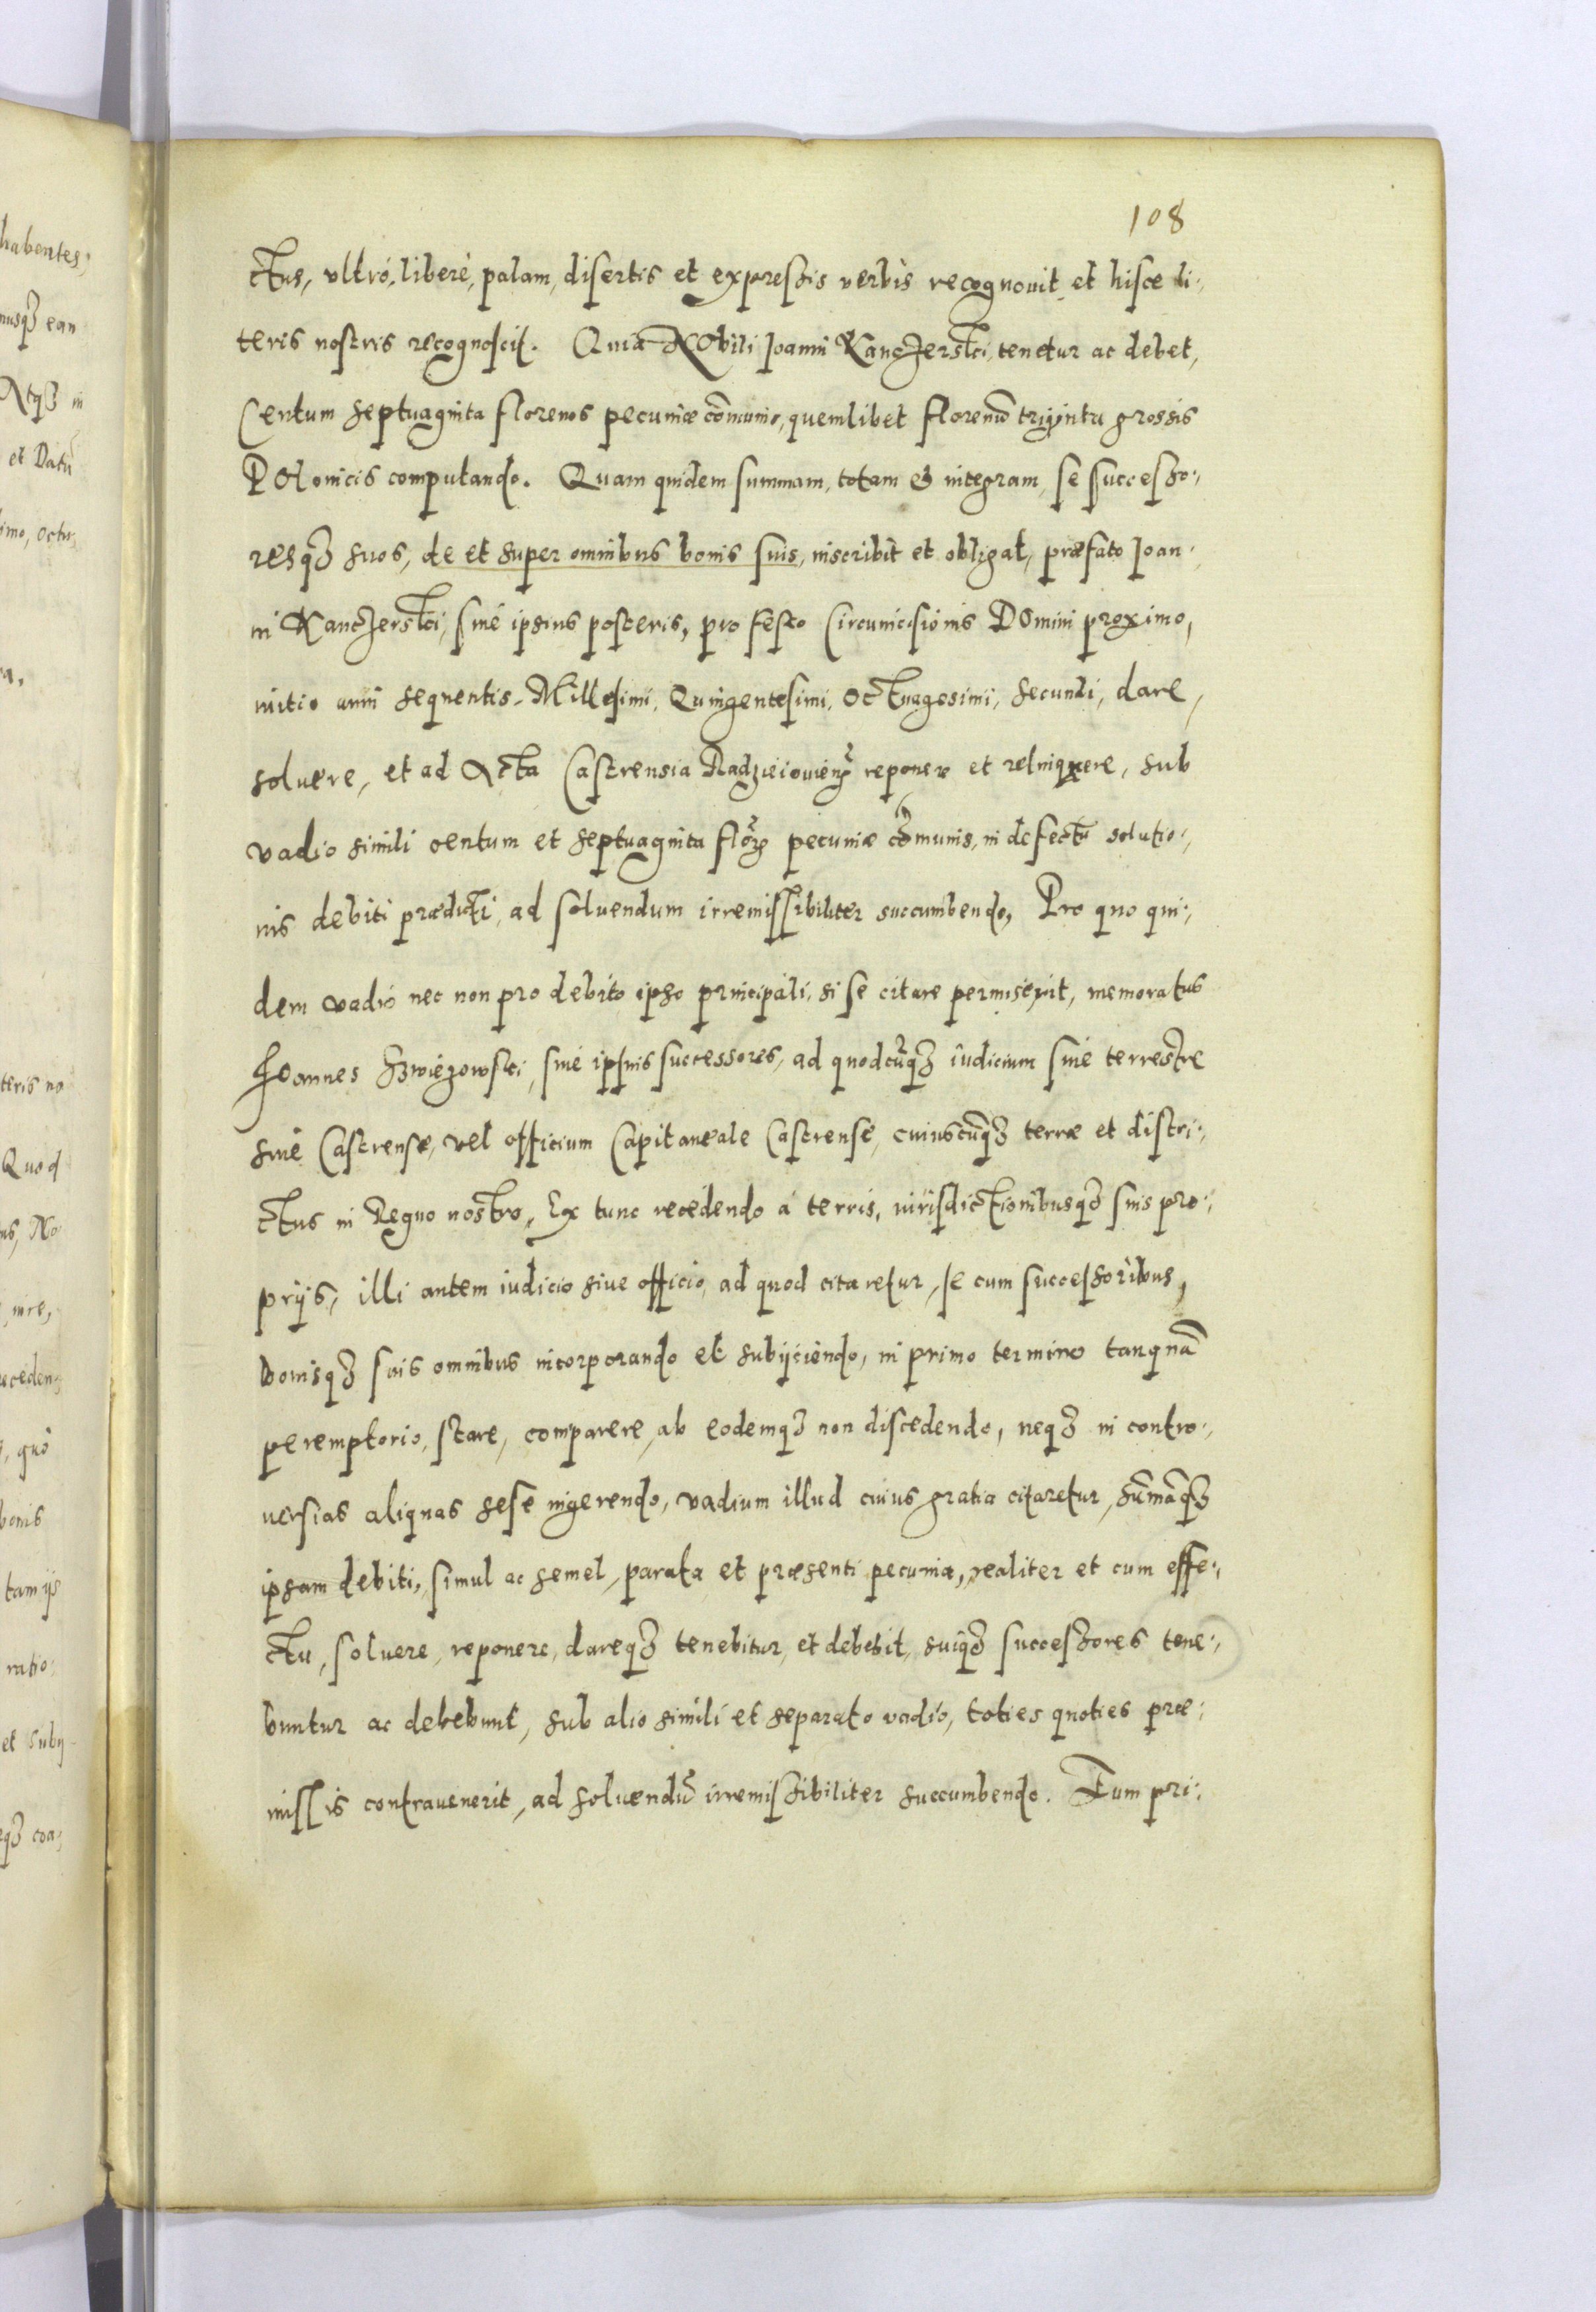 108
ctus, vltró, liberè, palam, disertis et expressis verbis recognouit et hisce li:
teris nostris recognoscit. Quia Nobili Joanni Kanczerski, tenetur ac debet,
Centum septuaginta florenos pecuniæ com̃unis, quemlibet florenũ triginta grossis
Polonicis computando. Quam quidem summam, totam & integram, se successo:
resq3 suos, de et super omnibus bonis suis, inscribit et obligat, præfato Joan:
ni Kanczerski, siue ipsius posteris, pro festo Circumcisionis Domini proximo,
initio anni sequentis Millesimi, Quingentesimi, Octuagesimi, secundi, dare,
soluere, et ad Acta Castrensia Radzieiouien̄ reponere et relinquere, sub
vadio simili centum et septuaginta flor̃ pecuniæ cõmunis, in defectũ solutio:
nis debiti prædicti, ad soluendum irremissibiliter succumbendo, Pro quo qui:
dem vadio nec non pro debito ipso principali, si se citare permiserit, memoratus
Joannes Szwiezowski, siue ipsius successores, ad quodcũq3 iudicium siue terrestre
siue Castrense, vel officium Capitaneale Castrense, cuiuscũq3 terræ et distri:
ctus in Regno nostro, Ex tunc recedendo á terris, iurisdictionibusq3 suis pro:
prijs, illi autem iudicio siue officio, ad quod citaretur, se cum successoribus,
bonisq3 suis omnibus incorporando et subijciendo, in primo termino tanquã
peremptorio, stare, comparere, ab eodemq3 non discedendo, neq3 in contro:
uersias aliquas sese ingerendo, vadium illud cuius gratia citaretur, sum̃ãq3
ipsam debiti, simul ac semel, parata et præsenti pecunia, realiter et cum effe:
ctu, soluere, reponere, dareq3 tenebitur, et debebit, suiq3 successores tene:
buntur ac debebunt, sub alio simili et separato vadio, toties quoties præ:
missis contrauenerit, ad soluendũ irremissibiliter succumbendo. Tum pri: